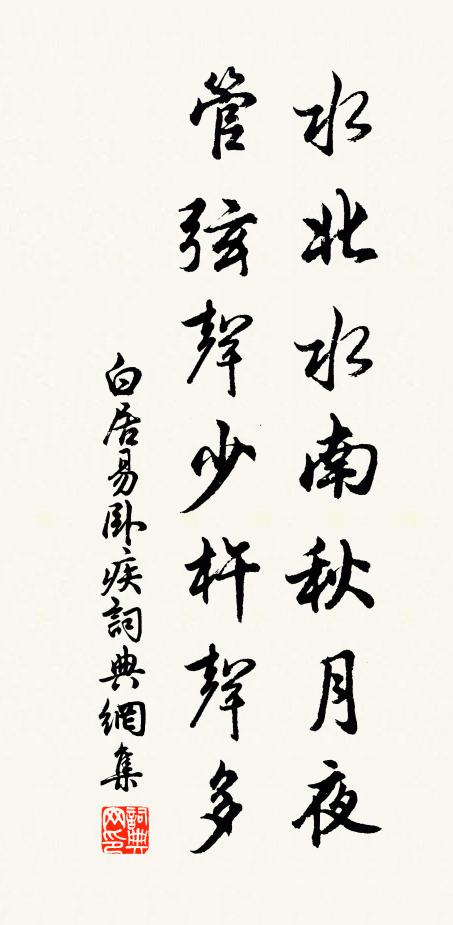 水北水南秋月夜
管弦聲少杵聲多
白居易臥疾詞典網集
詞典
网印